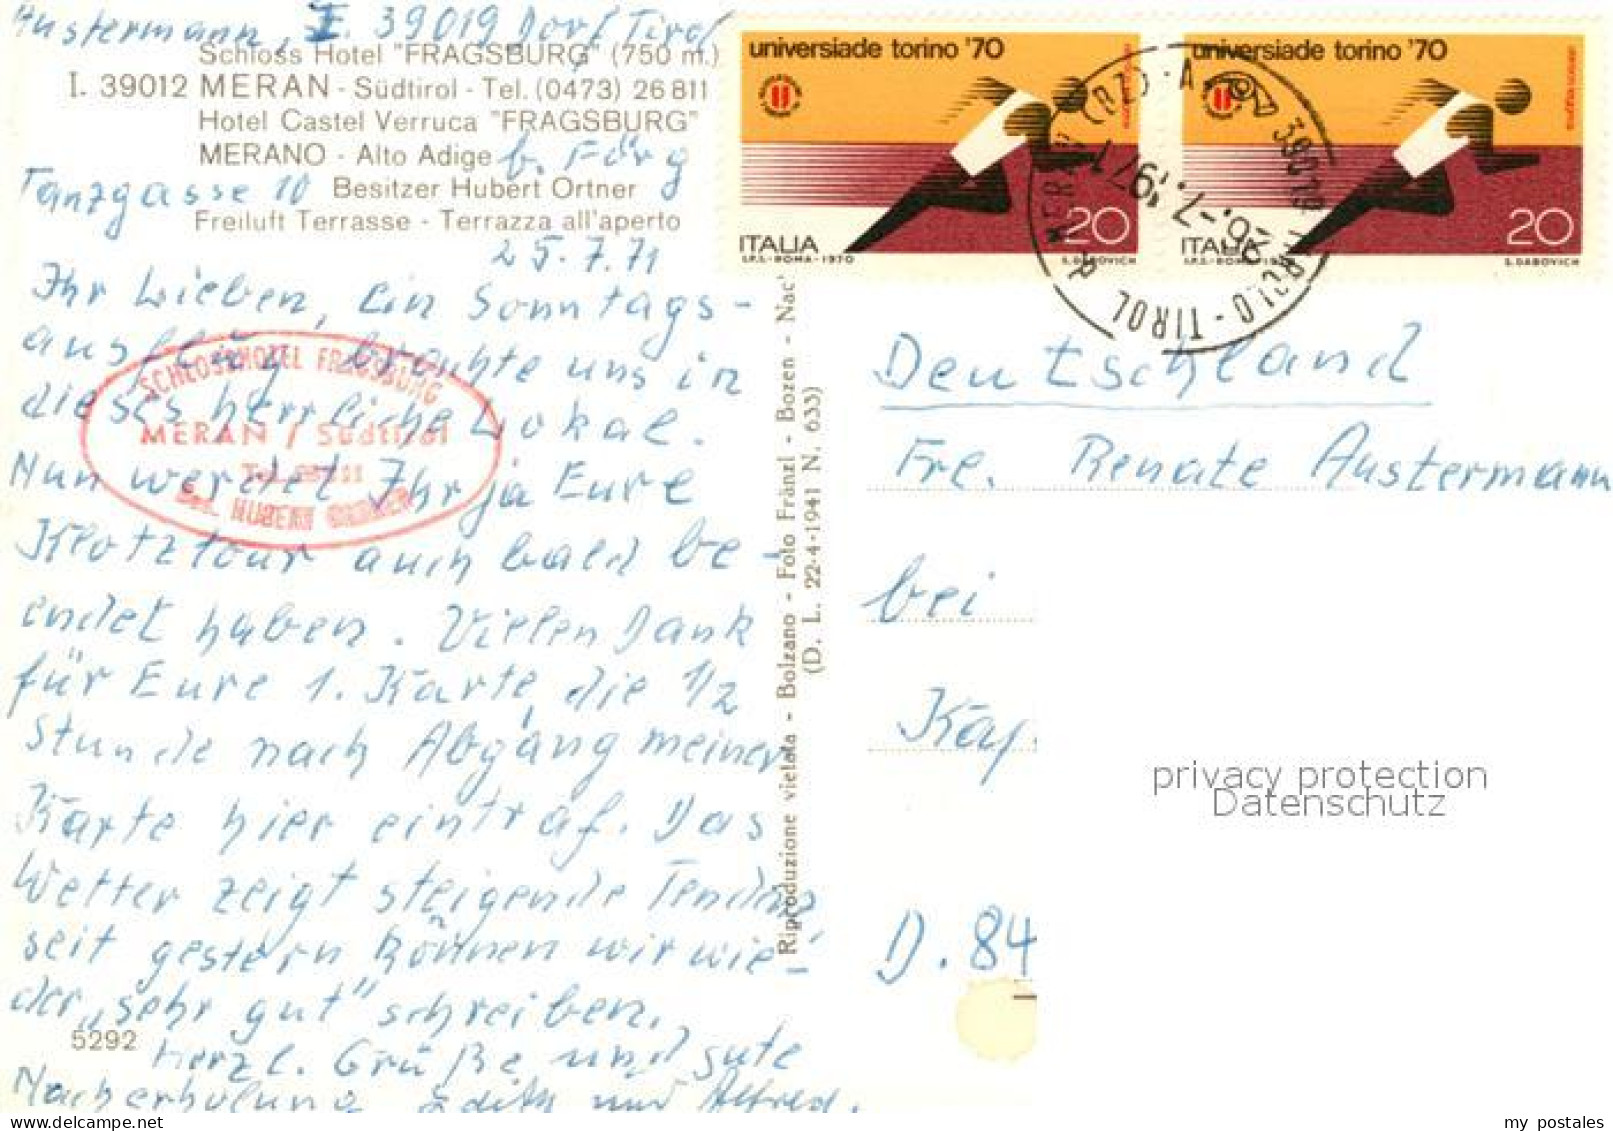 Austermann, I. 39019 Dorf Tirol
Schloss Hotel "FRAGSBURG" (750 m.)
I. 39012 MERAN - Südtirol - Tel. (0473) 26811
Hotel Castel Verruca "FRAGSBURG"
MERANO - Alto Adige
b. Förg
Tanzgasse 10
Besitzer Hubert Ortner
Freiluft Terrasse - Terrazza all'aperto
25.7.71
Ihr Lieben, Ein Sonntags-
ausflug brachte uns in
dieses herrliche Lokal.
Nun werdet Ihr ja Eure
Klotztour auch bald be-
endet haben. Vielen Dank
für Eure 1. Karte, die 1/2
Stunde nach Abgang meiner
Karte hier eintraf. Das
Wetter zeigt steigende Tendenz,
seit gestern können wir wie-
der "sehr gut" schreiben.
Herzl. Grüße und gute
Nacherholung Edith und Alfred.
5292
SCHLOSSHOTEL FRAGSBURG
MERAN / Südtirol
Tel. 26811
HUBERT
Riproduzione vietata - Bolzano - Foto Fränzl - Bozen - Nac
(D. L. 22-4-1941 N. 633)
universiade torino '70
ITALIA
20
I.P.S.-ROMA-1970
S. DABOVICH
universiade torino '70
ITALIA
20
S. DABOVICH
39019 TIROLO - TIROL
26.-7.1971
Deutschland
Frl. Renate Austermann
bei
Kap.
D. 84
privacy protection
Datenschutz
my postales